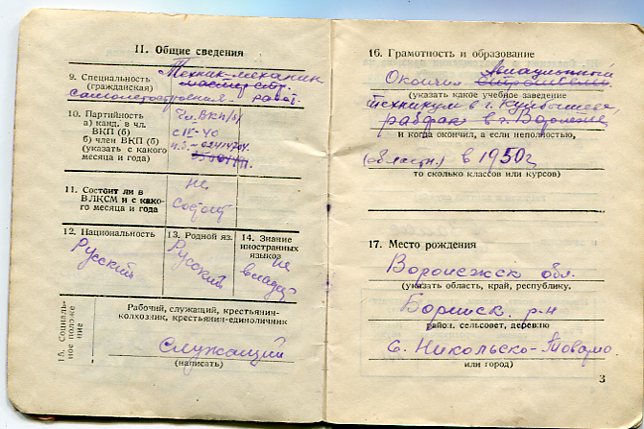 11. Общие сведения
9. Специальность Техник-механик
(гражданская) мастер стр.
самолетостроения. работ.
10. Партийность Чл. ВКП/б/
а) канд. в чл. с IV-40
ВКП (б)
б) член ВКП (б)
(указать с какого
месяца и года)
11. Состоит ли в не
ВЛКСМ и с како- состоит
го месяца и года
12. Национальность Русский
13. Родной яз. Русский
14. Знание
иностранных
языков не
владеет
15. Социаль-
ное положе-
ние
Рабочий, служащий, крестьянин-
колхозник, крестьянин-единоличник
Служащий
(написать)
16. Грамотность и образование
Окончил Авиационный
(указать какое учебное заведение
техникум в г. Куйбышеве
рабфак в г. Воронеже
и когда окончил, а если неполностью,
в 1950г
то сколько классов или курсов)
17. Место рождения
Воронежск обл.
(указать область, край, республику.
Боринск. р-н
район, сельсовет, деревню
с. Никольско-
или город)
3